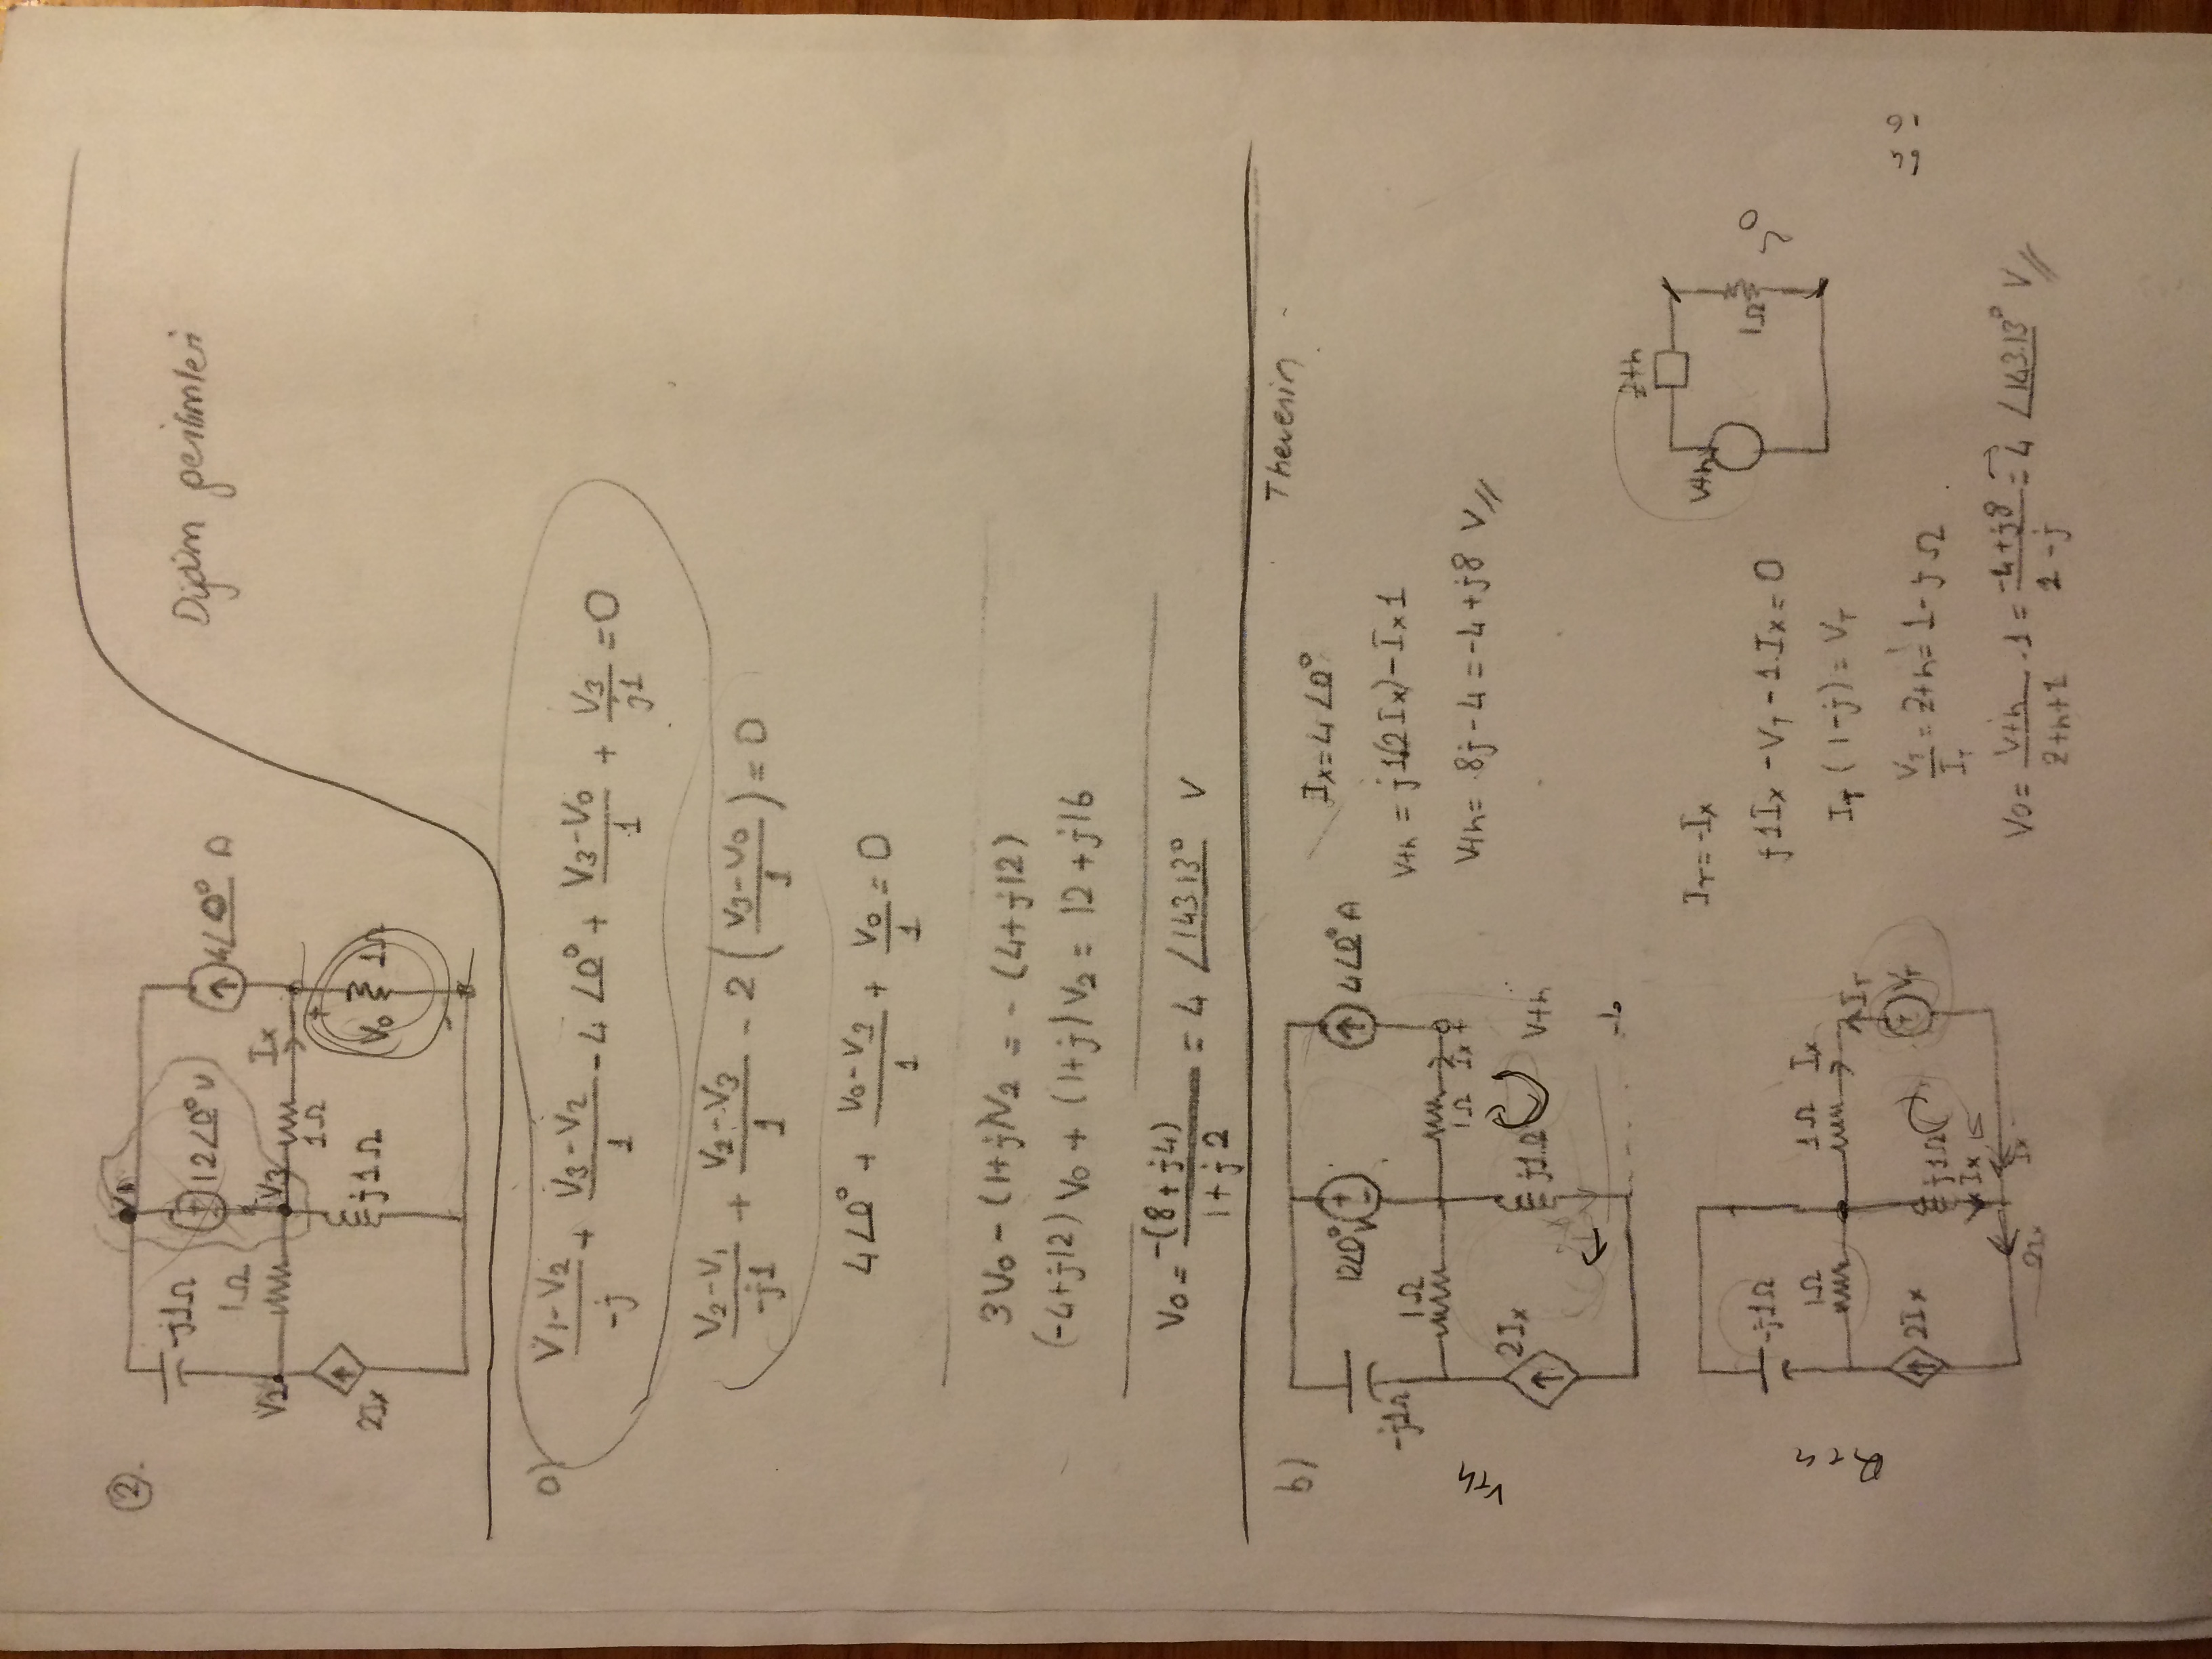 ②.
V1
-j1Ω
12∠0° V
4∠0° A
1Ω
V2
V3
Ix
1Ω
2Ix
j1Ω
+
Vo
1Ω
-
Düğüm gerilimleri
a)
(V1-V2)/(-j) + (V3-V2)/1 - 4∠0° + (V3-Vo)/1 + V3/(j1) = 0
(V2-V1)/(-j1) + (V2-V3)/1 - 2((V3-Vo)/1) = 0
4∠0° + (Vo-V3)/1 + Vo/1 = 0
3Vo - (1+j)V2 = - (4+j12)
(-4+j12) Vo + (1+j) V2 = 12 + j16
Vo = -(8+j4)/(1+j2) = 4 ∠143.13° V
b)
Thevenin
12∠0° V
+
-
4∠0° A
-j1Ω
1Ω
1Ω Ix +
VTh
2Ix
j1Ω
Vth
-
Ix = 4∠0°
Vth = j1(2Ix) - Ix1
Vth = 8j - 4 = -4 + j8 V//
Zth
Vth
1Ω
-j1Ω
1Ω
1Ω
Ix
RTh
IT
2Ix
j1Ω
+
VT
Ix
2Ix
Ix
IT = -Ix
j1Ix - VT - 1.Ix = 0
IT (1-j) = VT
VT/IT = Zth = 1 - j Ω
Vo = Vth/(Zth+1) . 1 = (-4+j8)/(2-j) = 4 ∠143.13° V//
64
16